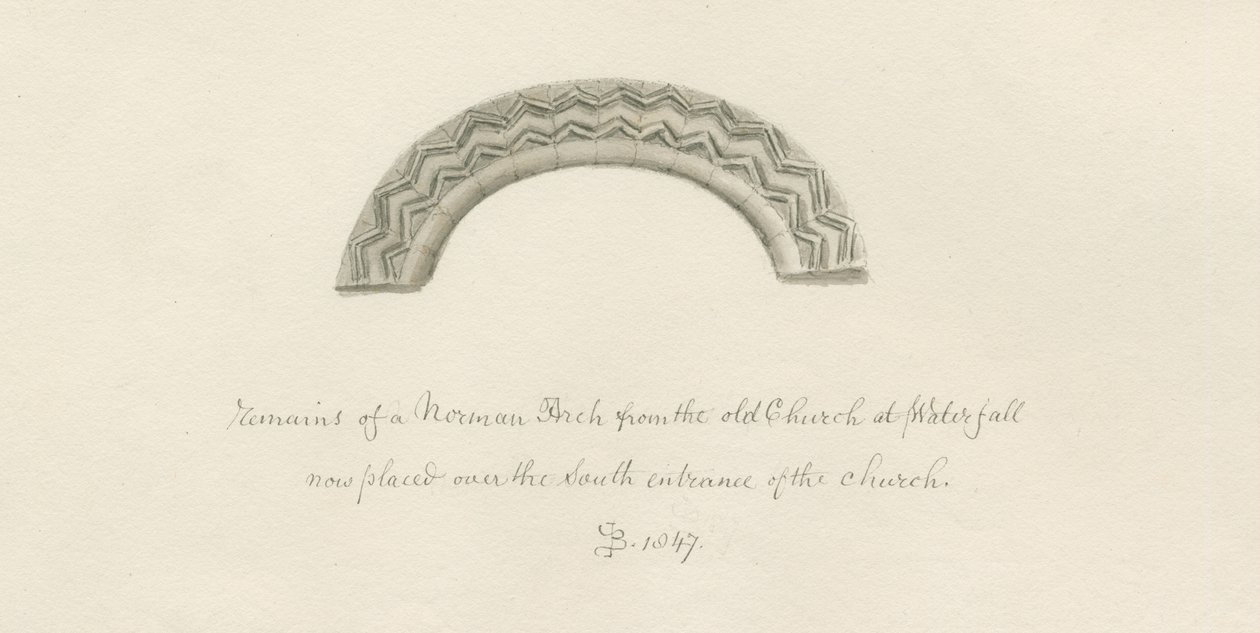 remains of a Norman Arch from the old Church at Waterfall
now placed over the South entrance of the church.
JB. 1847.